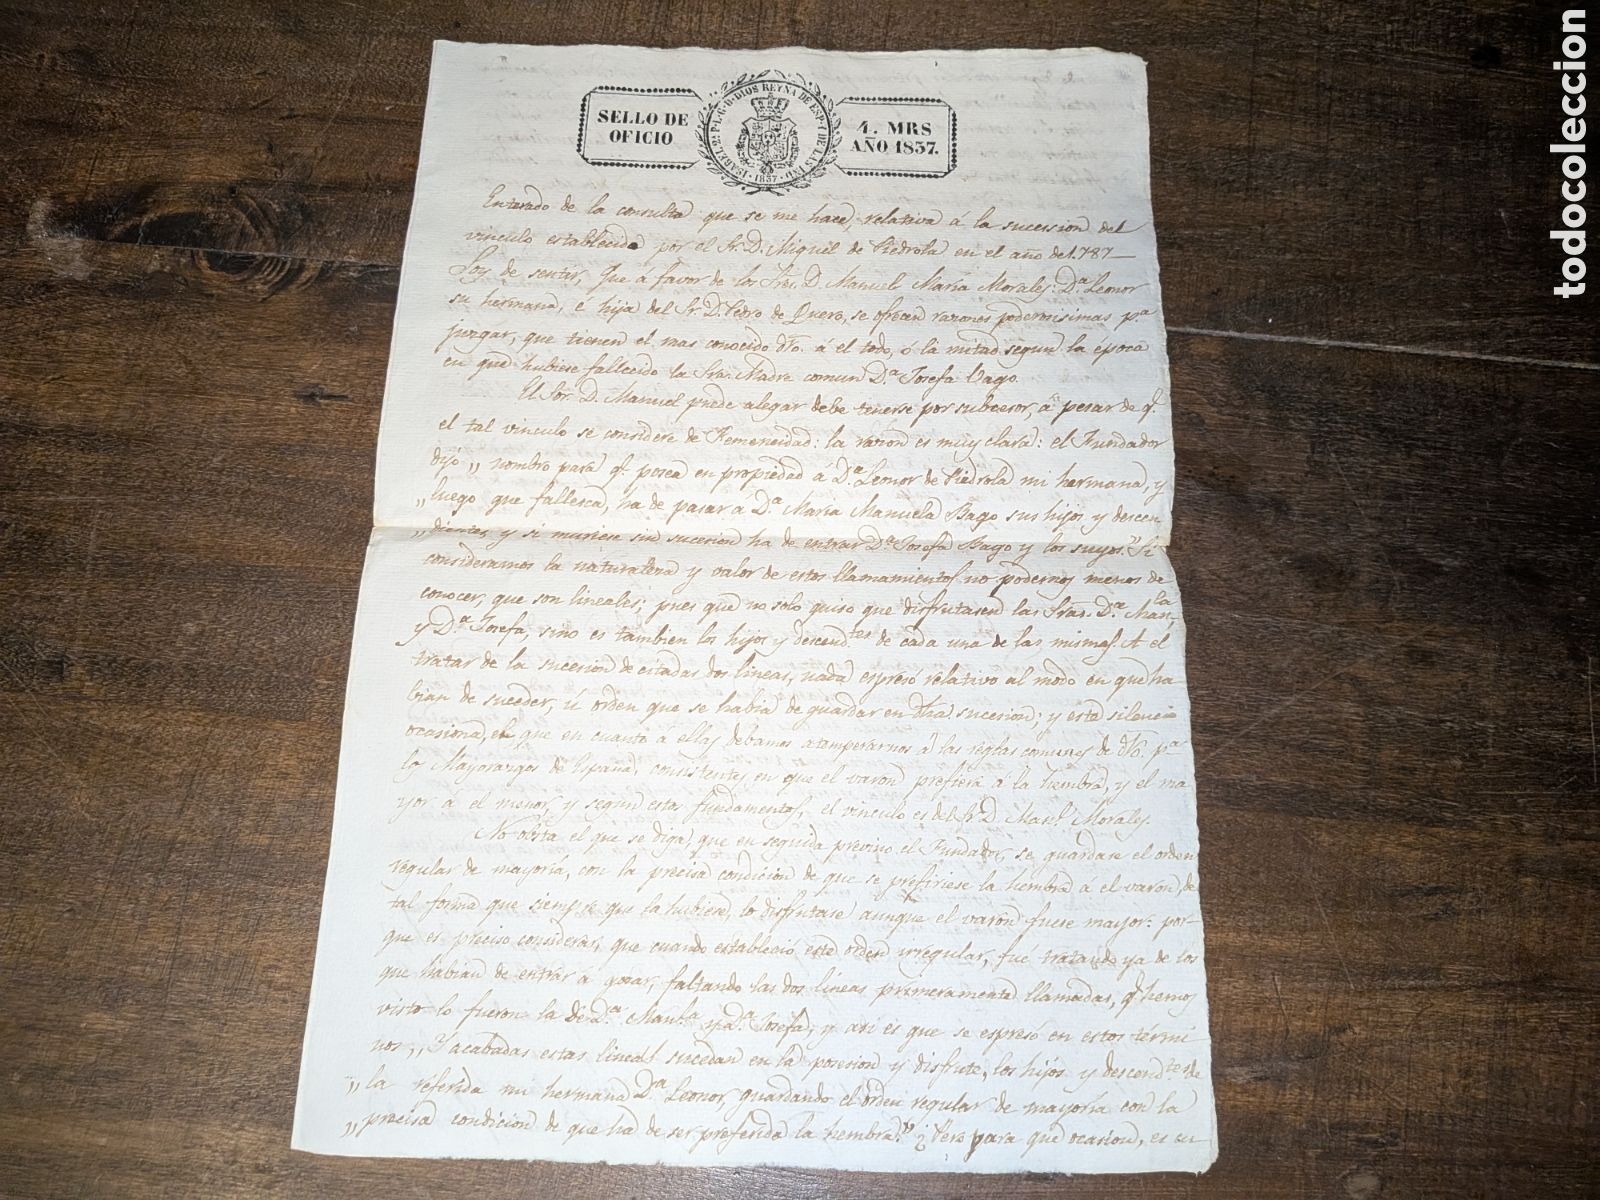 SELLO DE
OFICIO
ISABEL 2ª P.L.G.D.DIOS REYNA DE ESP. Y DE LAS IND.
1837
4. MRS
AÑO 1837.
Enterado de la consulta que se me hace, relativa á la sucesion del
vinculo establecido por el Sr. D. Miguel de Piedrola en el año de 1.787
Soy de sentir, que á favor de los Sres. D. Manuel María Morales, Dª Leonor
su hermana, é hija del Sr. D. Pedro de Quero, se ofrecen razones poderosisimas pª
juzgar, que tienen el mas conocido dro. á el todo, ó la mitad segun la época
en que hubiese fallecido la Sra. Madre comun Dª Josefa Bago.
El Sor. D. Manuel puede alegar debe tenerse por subcesor, á pesar de q.
el tal vinculo se considere de femeneidad: la razon es muy clara: el Fundador
dijo „ nombro para q. posea en propiedad á Dª Leonor de Piedrola mi hermana, y
„ luego que fallesca, ha de pasar á Dª María Manuela Bago sus hijos y descen
„ dientes, y si muriese sin sucesion ha de entrar Dª Josefa Bago y los suyos." Si
consideramos la naturaleza y valor de estos llamamientos, no podemos menos de
conocer, que son lineales; pues que no solo quiso que disfrutasen las Sras. Dª Manla
y Dª Josefa, sino es tambien los hijos y descendtes de cada una de las mismas. A el
tratar de la sucesion de estas dos lineas, nada espresó relativo al modo en que ha
bian de suceder, ú orden que se habia de guardar en dha. sucesion; y este silencio
ocasiona, el que en cuanto á ellas debamos atemperarnos á las reglas comunes de dro. pª
los Mayorazgos de España, consistentes en que el varon prefiera á la hembra, y el ma
yor á el menor, y segun estos fundamentos, el vinculo es del Sr. D. Manl. Morales.
No obsta el que se diga, que en seguida previno el Fundador, se guardase el orden
regular de mayoría, con la precisa condicion de que se prefiriese la hembra á el varon, de
tal forma que siempre que la hubiese, lo disfrutase aunque el varon fuese mayor: por
que es preciso considerar, que cuando estableció este orden irregular, fué tratando ya de los
que habian de entrar á gozar, faltando las dos lineas primeramente llamadas, q. hemos
visto lo fueron la de Dª Manla y Dª Josefa, y asi es que se espresó en estos térmi
nos, „ Y acabadas estas lineas sucedan en la posesion y disfrute, los hijos y descendtes de
„ la referida mi hermana Dª Leonor, guardando el orden regular de mayoría con la
„ precisa condicion de que ha de ser preferida la hembra." ¿ Pero para que ocasion, es su
todocoleccion